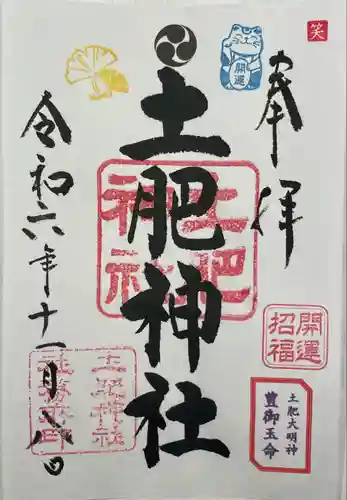 笑
奉拝
開運
土肥神社
土肥神社
令和六年十一月八日
開運
招福
土肥大明神
豊御玉命
土肥神社
社務所印